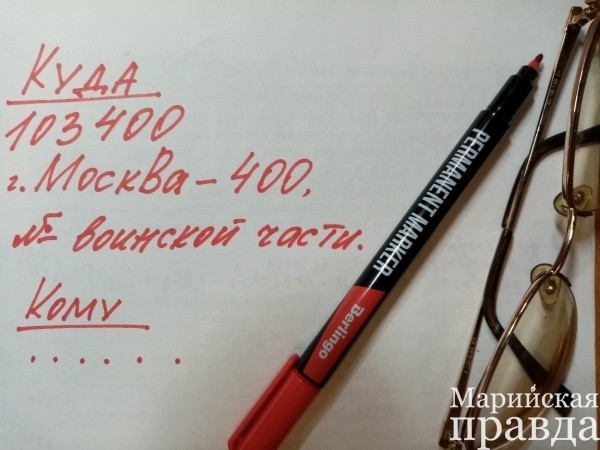 Куда
103400
г. Москва – 400,
№ воинской части.
Кому
. . . . . .
PERMANENT MARKER
Berlingo
Марийская
правда